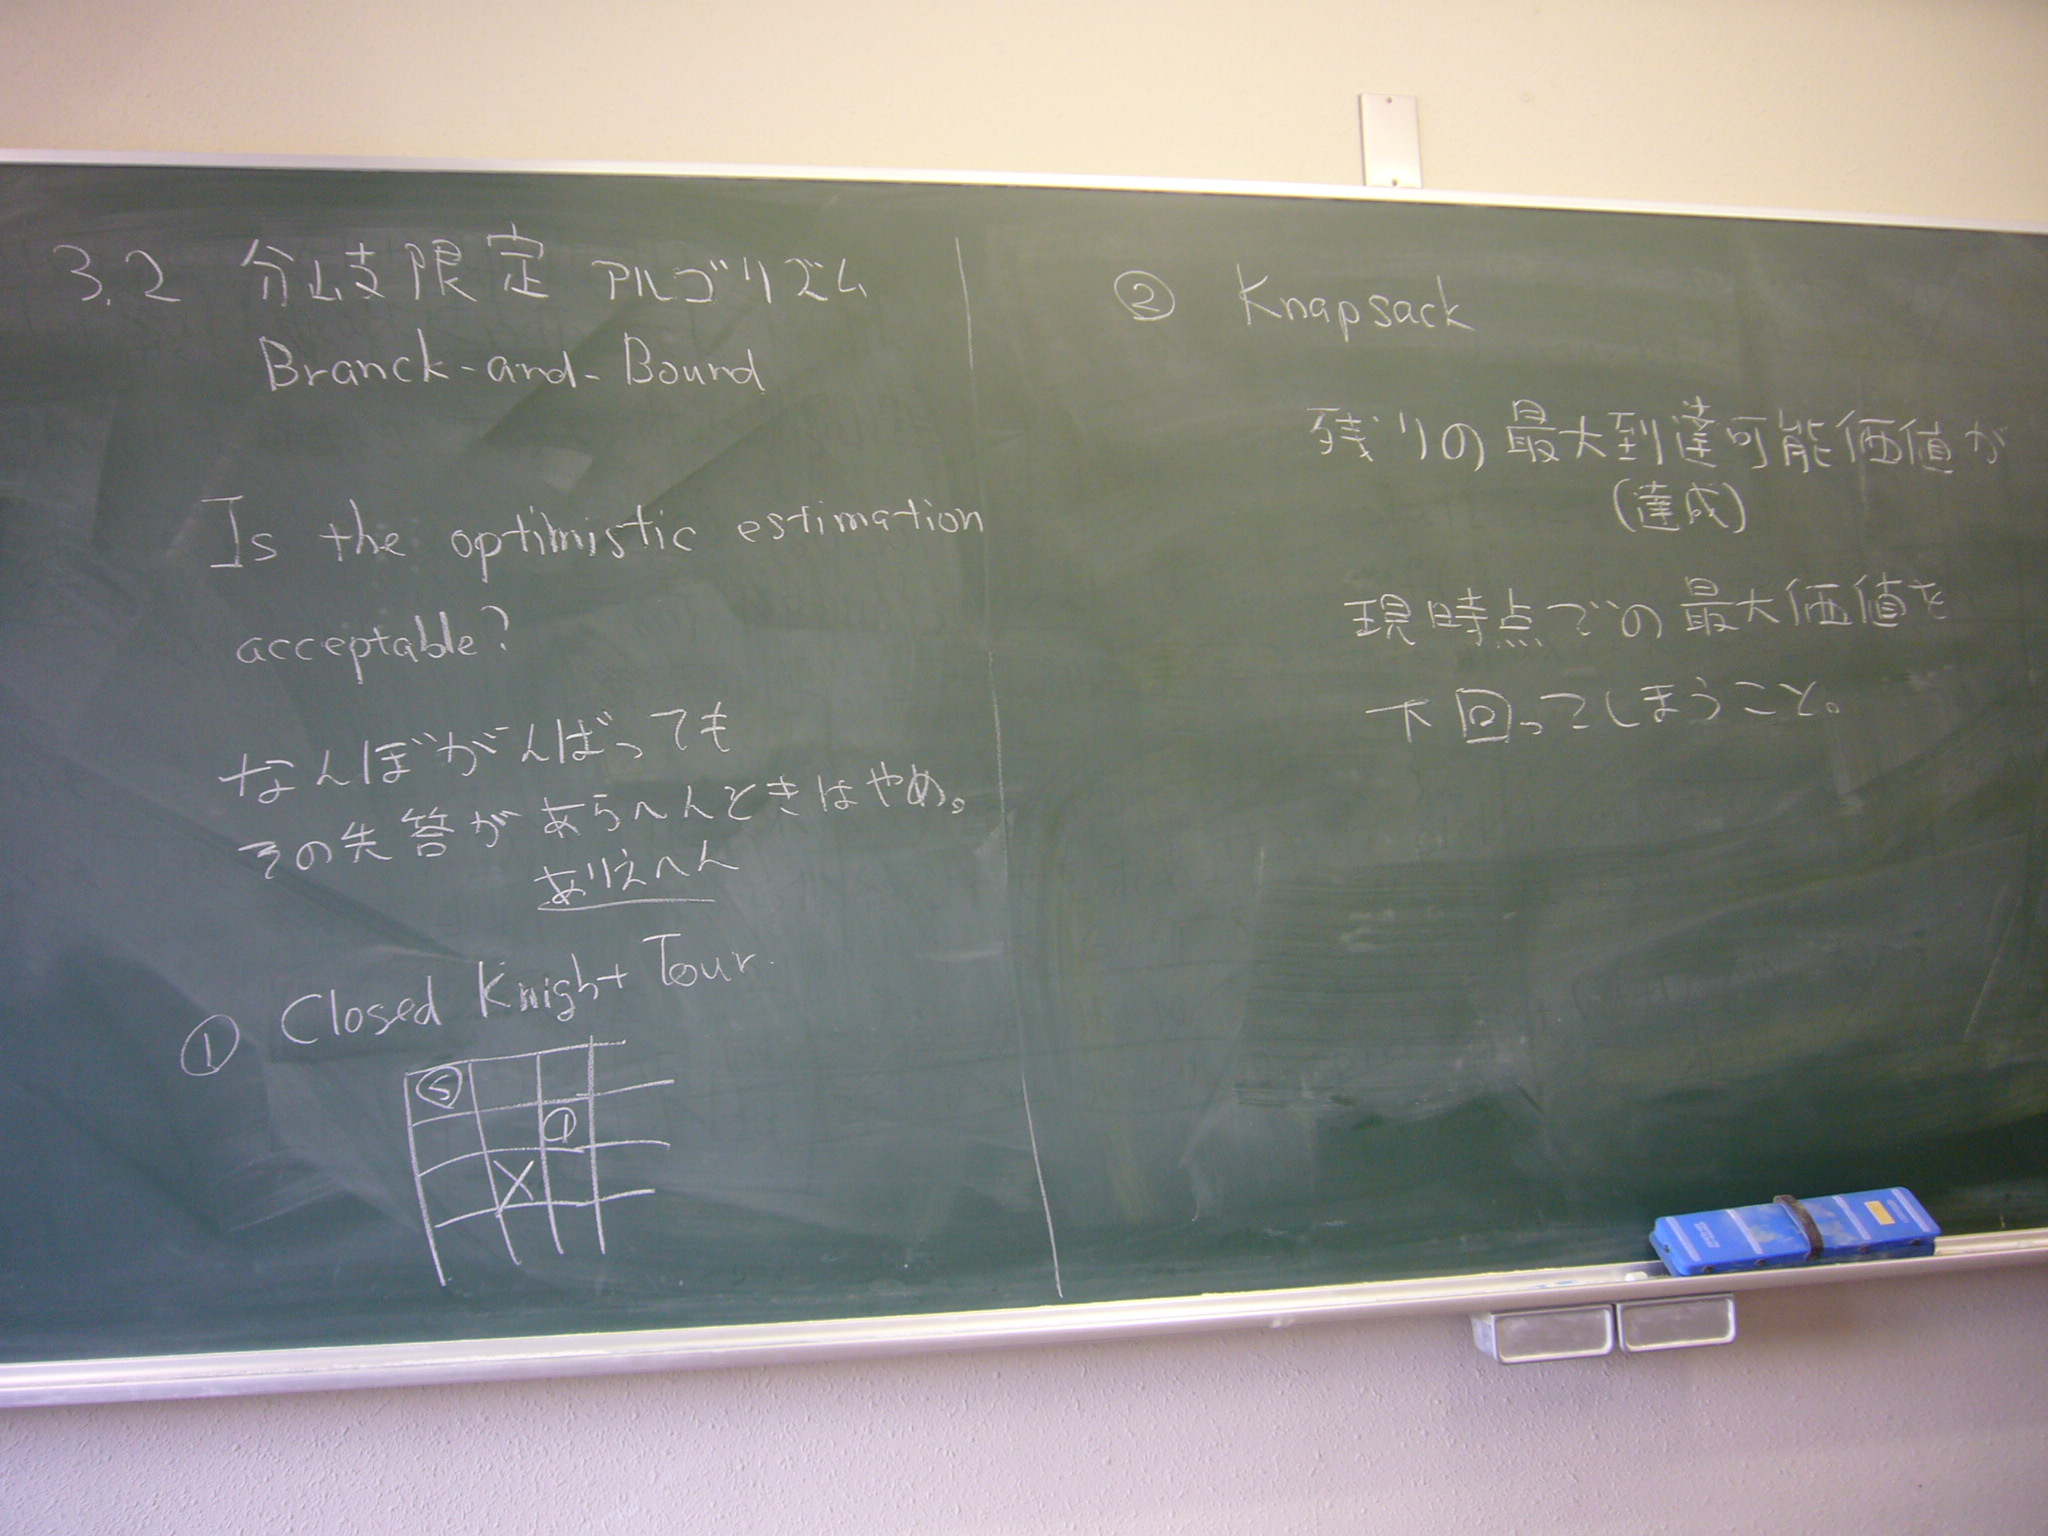 3.2 分岐限定 アルゴリズム
Branck-and-Bound
Is the optimistic estimation
acceptable?
なんぼがんばっても
その先答があらへんときはやめ。
ありえへん
① Closed Knight Tour.
S
1
X
② Knapsack
残りの最大到達可能価値が
(達成)
現時点での最大価値を
下回ってしまうこと。